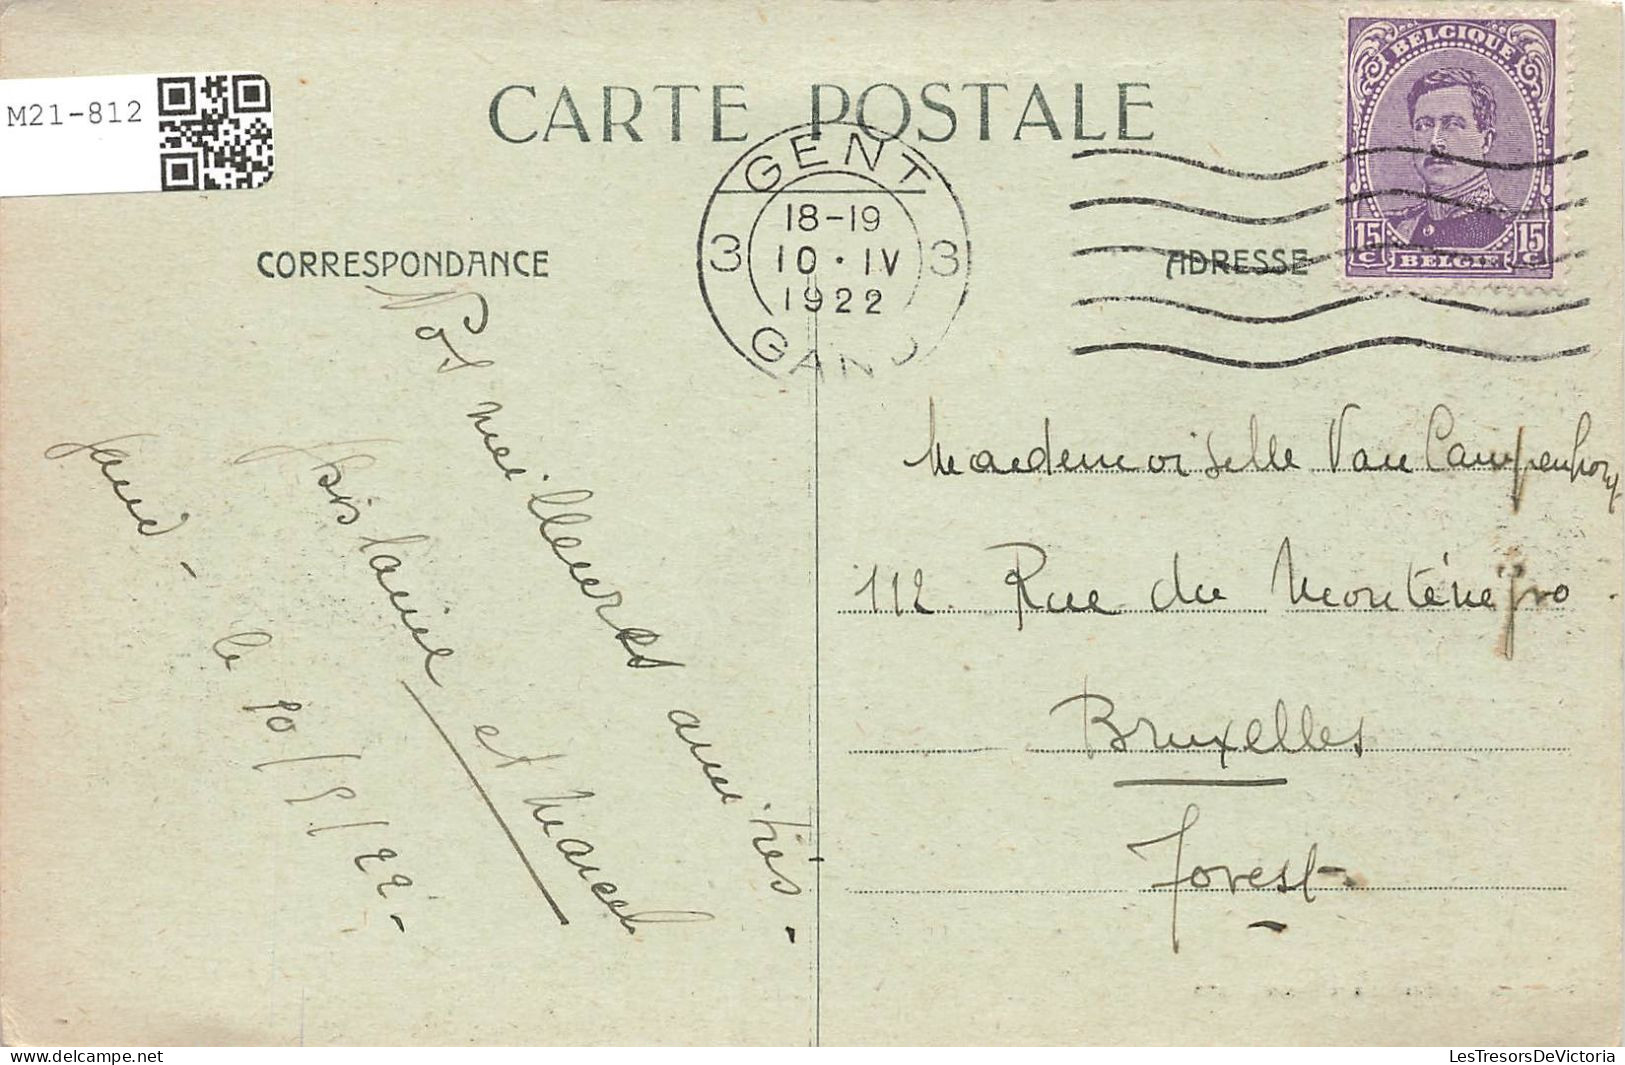 M21-812
CARTE POSTALE
BELGIQUE
15 C
15 C
BELGIE
GENT
18-19
3 10 · IV 3
1922
GAND
CORRESPONDANCE
ADRESSE
Nos meilleures amitiés.
et Marcel
Gand - le 10/5/22 -
Mademoiselle Van Campenhout
112. Rue du Monténégro.
Bruxelles
Forest
LesTresorsDeVictoria
www.delcampe.net